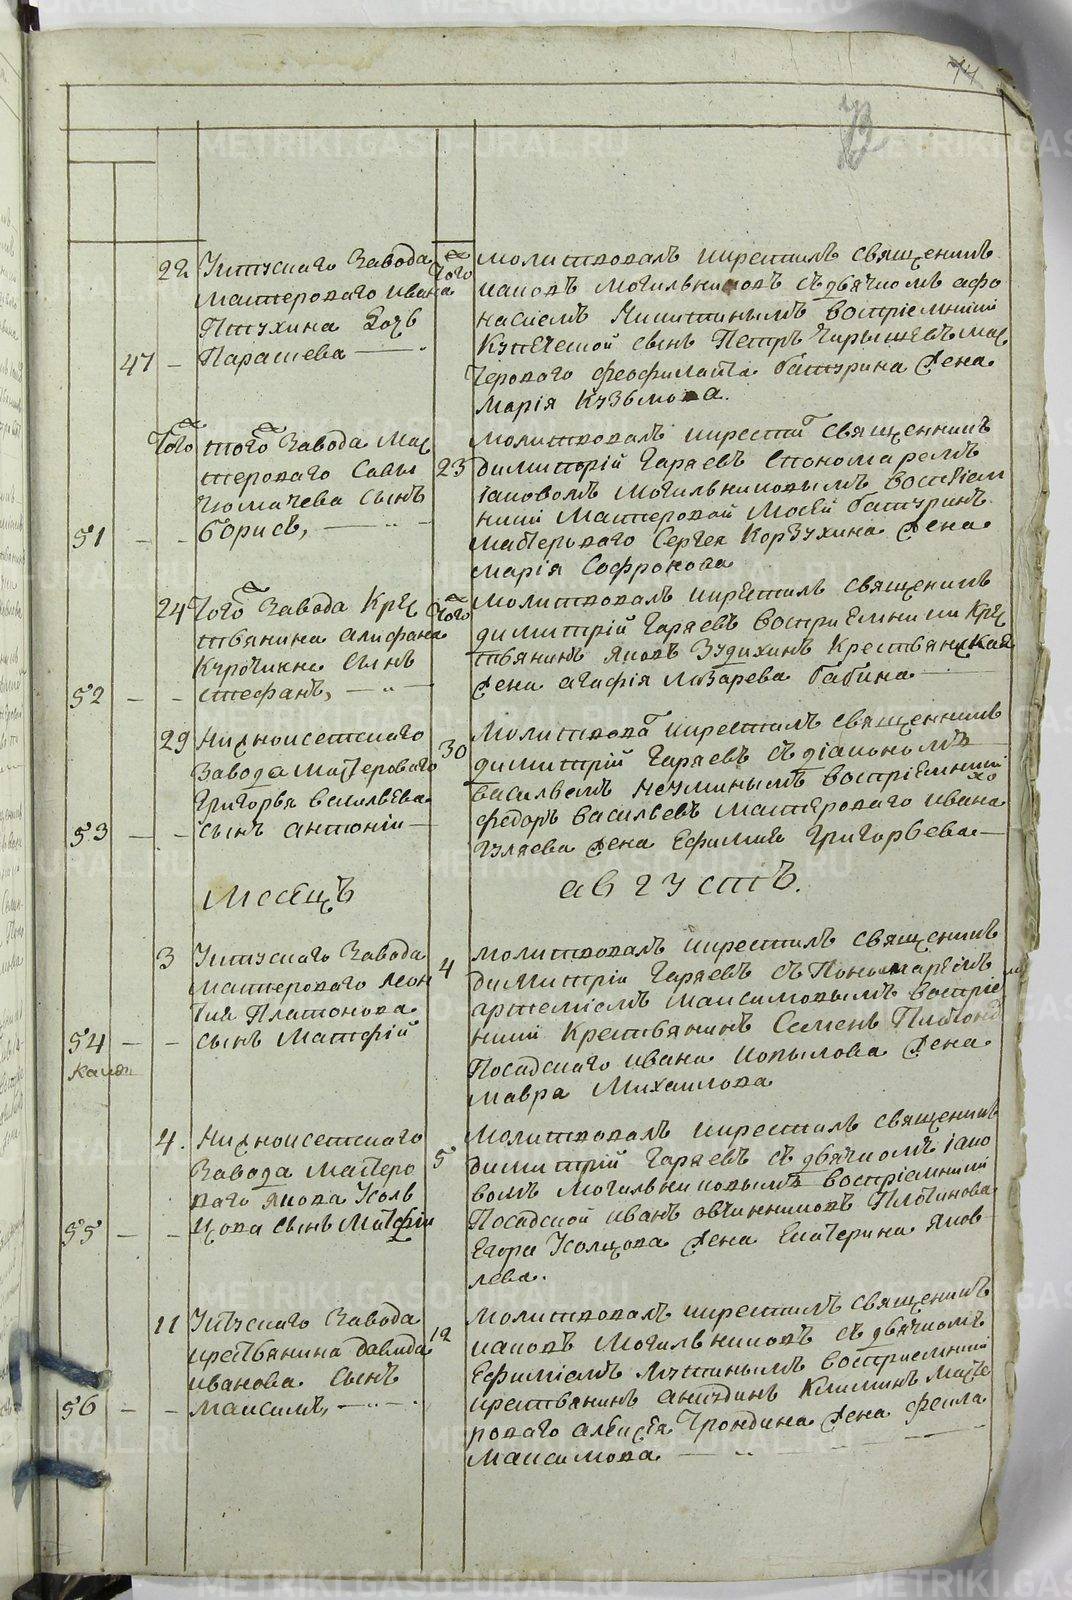 74
73
22 Уткускаго Завода
Мастероваго Ивана
Птухина дочь
47 Парасковa
того
молитвовалъ и крестилъ священникъ
иаковъ могильниковъ съ дьячкомъ афо
насиемъ Никитинымъ восприемники
Купеческой сынъ Петръ мас
тероваго феофилакта батурина жена
марія Кузьмова.
Того того Завода мас
тероваго Савы
сынъ
51 борисъ,
23
молитвовалъ и крести священникъ
димитрій Гаряевъ с пономаремъ
іаковомъ могильниковымъ восприем
ники мастеровой батуринъ
мастероваго Сергея Корзухина жена
марія Софронова
24 того Завода Крес
тьянина алифана
Курочкина сынъ
52 стефанъ,
того
молитвовалъ и крестилъ священникъ
димитрій Гаряевъ восприемники Крес
тьянинъ яковъ Зудихинъ Крестьянская
жена агафія лазарева бабина
29 Нижноисетскаго
Завода мастероваго
Григорья васильева
53 сынъ антоній
30
молитвова и крестилъ священникъ
димитрій Гаряевъ съ діакономъ
васильемъ восприемники
федоръ васильевъ мастероваго ивана
гуляева жена Ефимія Григорьева
месяцъ августъ.
3 Уткускаго Завода
мастероваго леон
тия Платонова
54 сынъ матфій
4
молитвовалъ и крестилъ священникъ
димитрій Гаряевъ съ Пономаремъ
артеміемъ максимовымъ восприем
ники Крестьянинъ Семенъ
Посадскаго ивана копылова жена
мавра михаилова
4. Нижноисетскаго
Завода мастеро
ваго якова Усоль
55 цова сынъ матфій
5
молитвовалъ и крестилъ священникъ
димитрій Гаряевъ съ дьячкомъ іако
вомъ могильниковымъ восприемники
Посадской иванъ овчинниковъ
Егора Усолцова жена Екатерина яков
лева.
11 Уткускаго Завода
крестьянина давида
иванова сынъ
56 максимъ,
12
молитвовалъ и крестилъ священникъ
иаковъ могильниковъ съ дьячкомъ
Ефиміемъ лукинымъ восприемники
крестьянинъ Климинъ масте
роваго алексея жена фекла
максимова